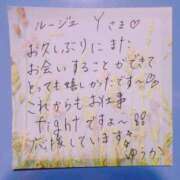 ルージュ Yさま♡
お久しぶりにまた
お会いすることができて
とっても嬉しかたです〜
これからもお仕事
fightですよ〜
応援しています
ゆうか